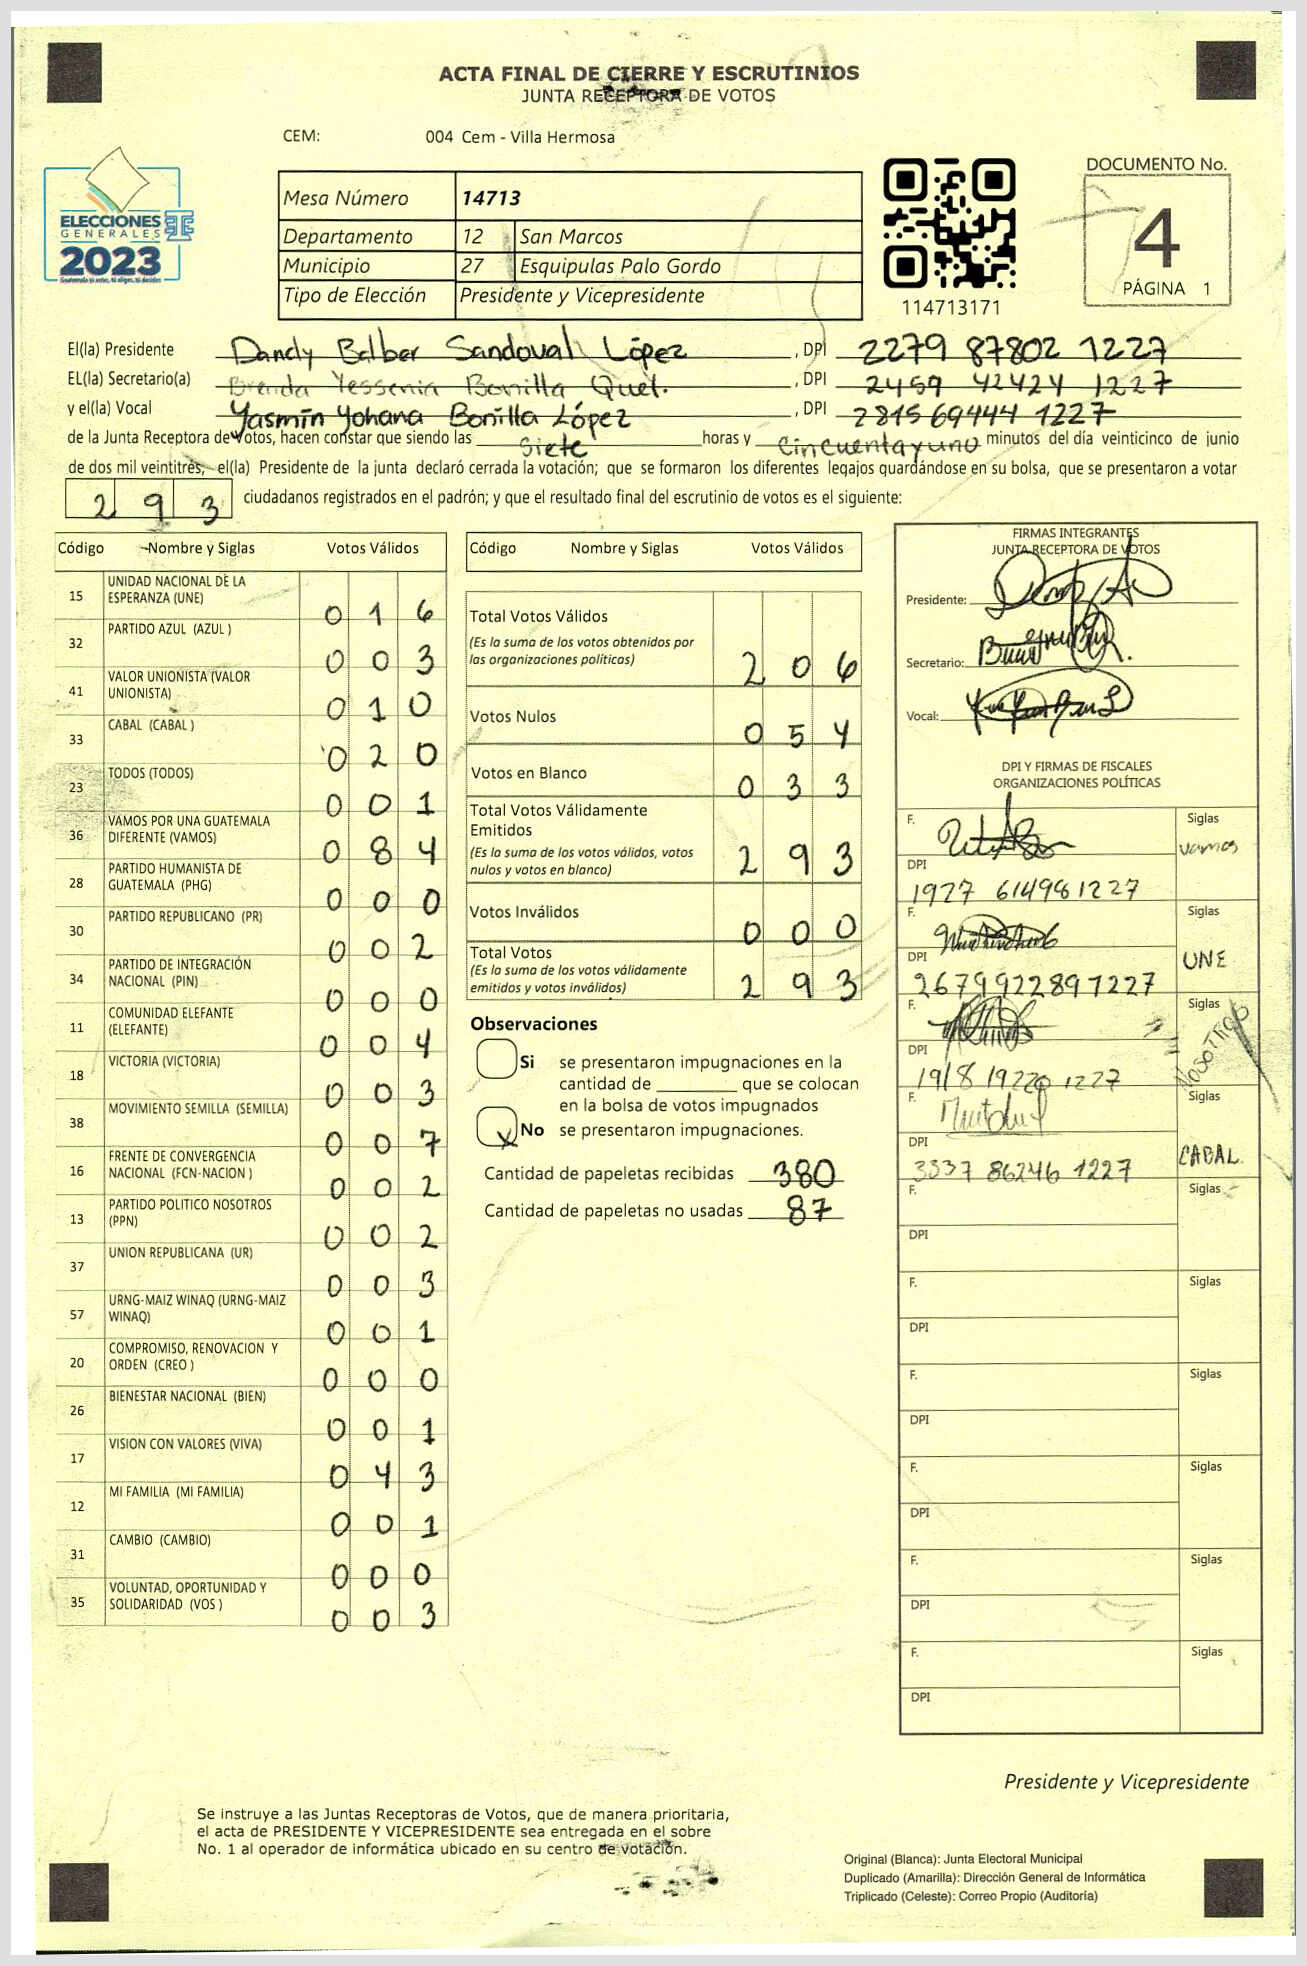 ACTA FINAL DE CIERRE Y ESCRUTINIOS
JUNTA RECEPTORA DE VOTOS
CEM: 004 Cem - Villa Hermosa
ELECCIONES
GENERALES
2023
Mesa Número 14713
Departamento 12 San Marcos
Municipio 27 Esquipulas Palo Gordo
Tipo de Elección Presidente y Vicepresidente
114713171
DOCUMENTO No.
4
PÁGINA 1
El(la) Presidente Dandy Balber Sandoval López, DPI 2279 87802 1227
EL(la) Secretario(a) Brenda Yessenia Bonilla Quel., DPI 2459 42424 1227
y el(la) Vocal Yasmin Yohana Bonilla López, DPI 2815 69444 1227
de la Junta Receptora de Votos, hacen constar que siendo las siete horas y cincuenta y uno minutos del día veinticinco de junio
de dos mil veintitrés, el(la) Presidente de la junta declaró cerrada la votación; que se formaron los diferentes legajos guardándose en su bolsa, que se presentaron a votar
293 ciudadanos registrados en el padrón; y que el resultado final del escrutinio de votos es el siguiente:
Código Nombre y Siglas Votos Válidos
15 UNIDAD NACIONAL DE LA ESPERANZA (UNE) 016
32 PARTIDO AZUL (AZUL ) 003
41 VALOR UNIONISTA (VALOR UNIONISTA) 010
33 CABAL (CABAL ) 020
23 TODOS (TODOS) 001
36 VAMOS POR UNA GUATEMALA DIFERENTE (VAMOS) 084
28 PARTIDO HUMANISTA DE GUATEMALA (PHG) 000
30 PARTIDO REPUBLICANO (PR) 002
34 PARTIDO DE INTEGRACIÓN NACIONAL (PIN) 000
11 COMUNIDAD ELEFANTE (ELEFANTE) 004
18 VICTORIA (VICTORIA) 003
38 MOVIMIENTO SEMILLA (SEMILLA) 007
16 FRENTE DE CONVERGENCIA NACIONAL (FCN-NACION ) 002
13 PARTIDO POLITICO NOSOTROS (PPN) 002
37 UNION REPUBLICANA (UR) 003
57 URNG-MAIZ WINAQ (URNG-MAIZ WINAQ) 001
20 COMPROMISO, RENOVACION Y ORDEN (CREO ) 000
26 BIENESTAR NACIONAL (BIEN) 001
17 VISION CON VALORES (VIVA) 043
12 MI FAMILIA (MI FAMILIA) 001
31 CAMBIO (CAMBIO) 000
35 VOLUNTAD, OPORTUNIDAD Y SOLIDARIDAD (VOS ) 003
Código Nombre y Siglas Votos Válidos
Total Votos Válidos
(Es la suma de los votos obtenidos por
las organizaciones políticas) 206
Votos Nulos 054
Votos en Blanco 033
Total Votos Válidamente
Emitidos
(Es la suma de los votos válidos, votos
nulos y votos en blanco) 293
Votos Inválidos 000
Total Votos
(Es la suma de los votos válidamente
emitidos y votos inválidos) 293
Observaciones
Si se presentaron impugnaciones en la
cantidad de ________ que se colocan
en la bolsa de votos impugnados
x No se presentaron impugnaciones.
Cantidad de papeletas recibidas 380
Cantidad de papeletas no usadas 87
FIRMAS INTEGRANTES
JUNTA RECEPTORA DE VOTOS
Presidente:
Secretario:
Vocal:
DPI Y FIRMAS DE FISCALES
ORGANIZACIONES POLÍTICAS
F. Siglas
vamos
DPI
1927 61498 1227
F. Siglas
UNE
DPI
2679922891227
F. Siglas
NOSOTROS
DPI
1918 19220 1227
F. Siglas
CABAL
DPI
3337 86246 1227
F. Siglas
DPI
F. Siglas
DPI
F. Siglas
DPI
F. Siglas
DPI
F. Siglas
DPI
F. Siglas
DPI
Presidente y Vicepresidente
Se instruye a las Juntas Receptoras de Votos, que de manera prioritaria,
el acta de PRESIDENTE Y VICEPRESIDENTE sea entregada en el sobre
No. 1 al operador de informática ubicado en su centro de votación.
Original (Blanca): Junta Electoral Municipal
Duplicado (Amarilla): Dirección General de Informática
Triplicado (Celeste): Correo Propio (Auditoría)